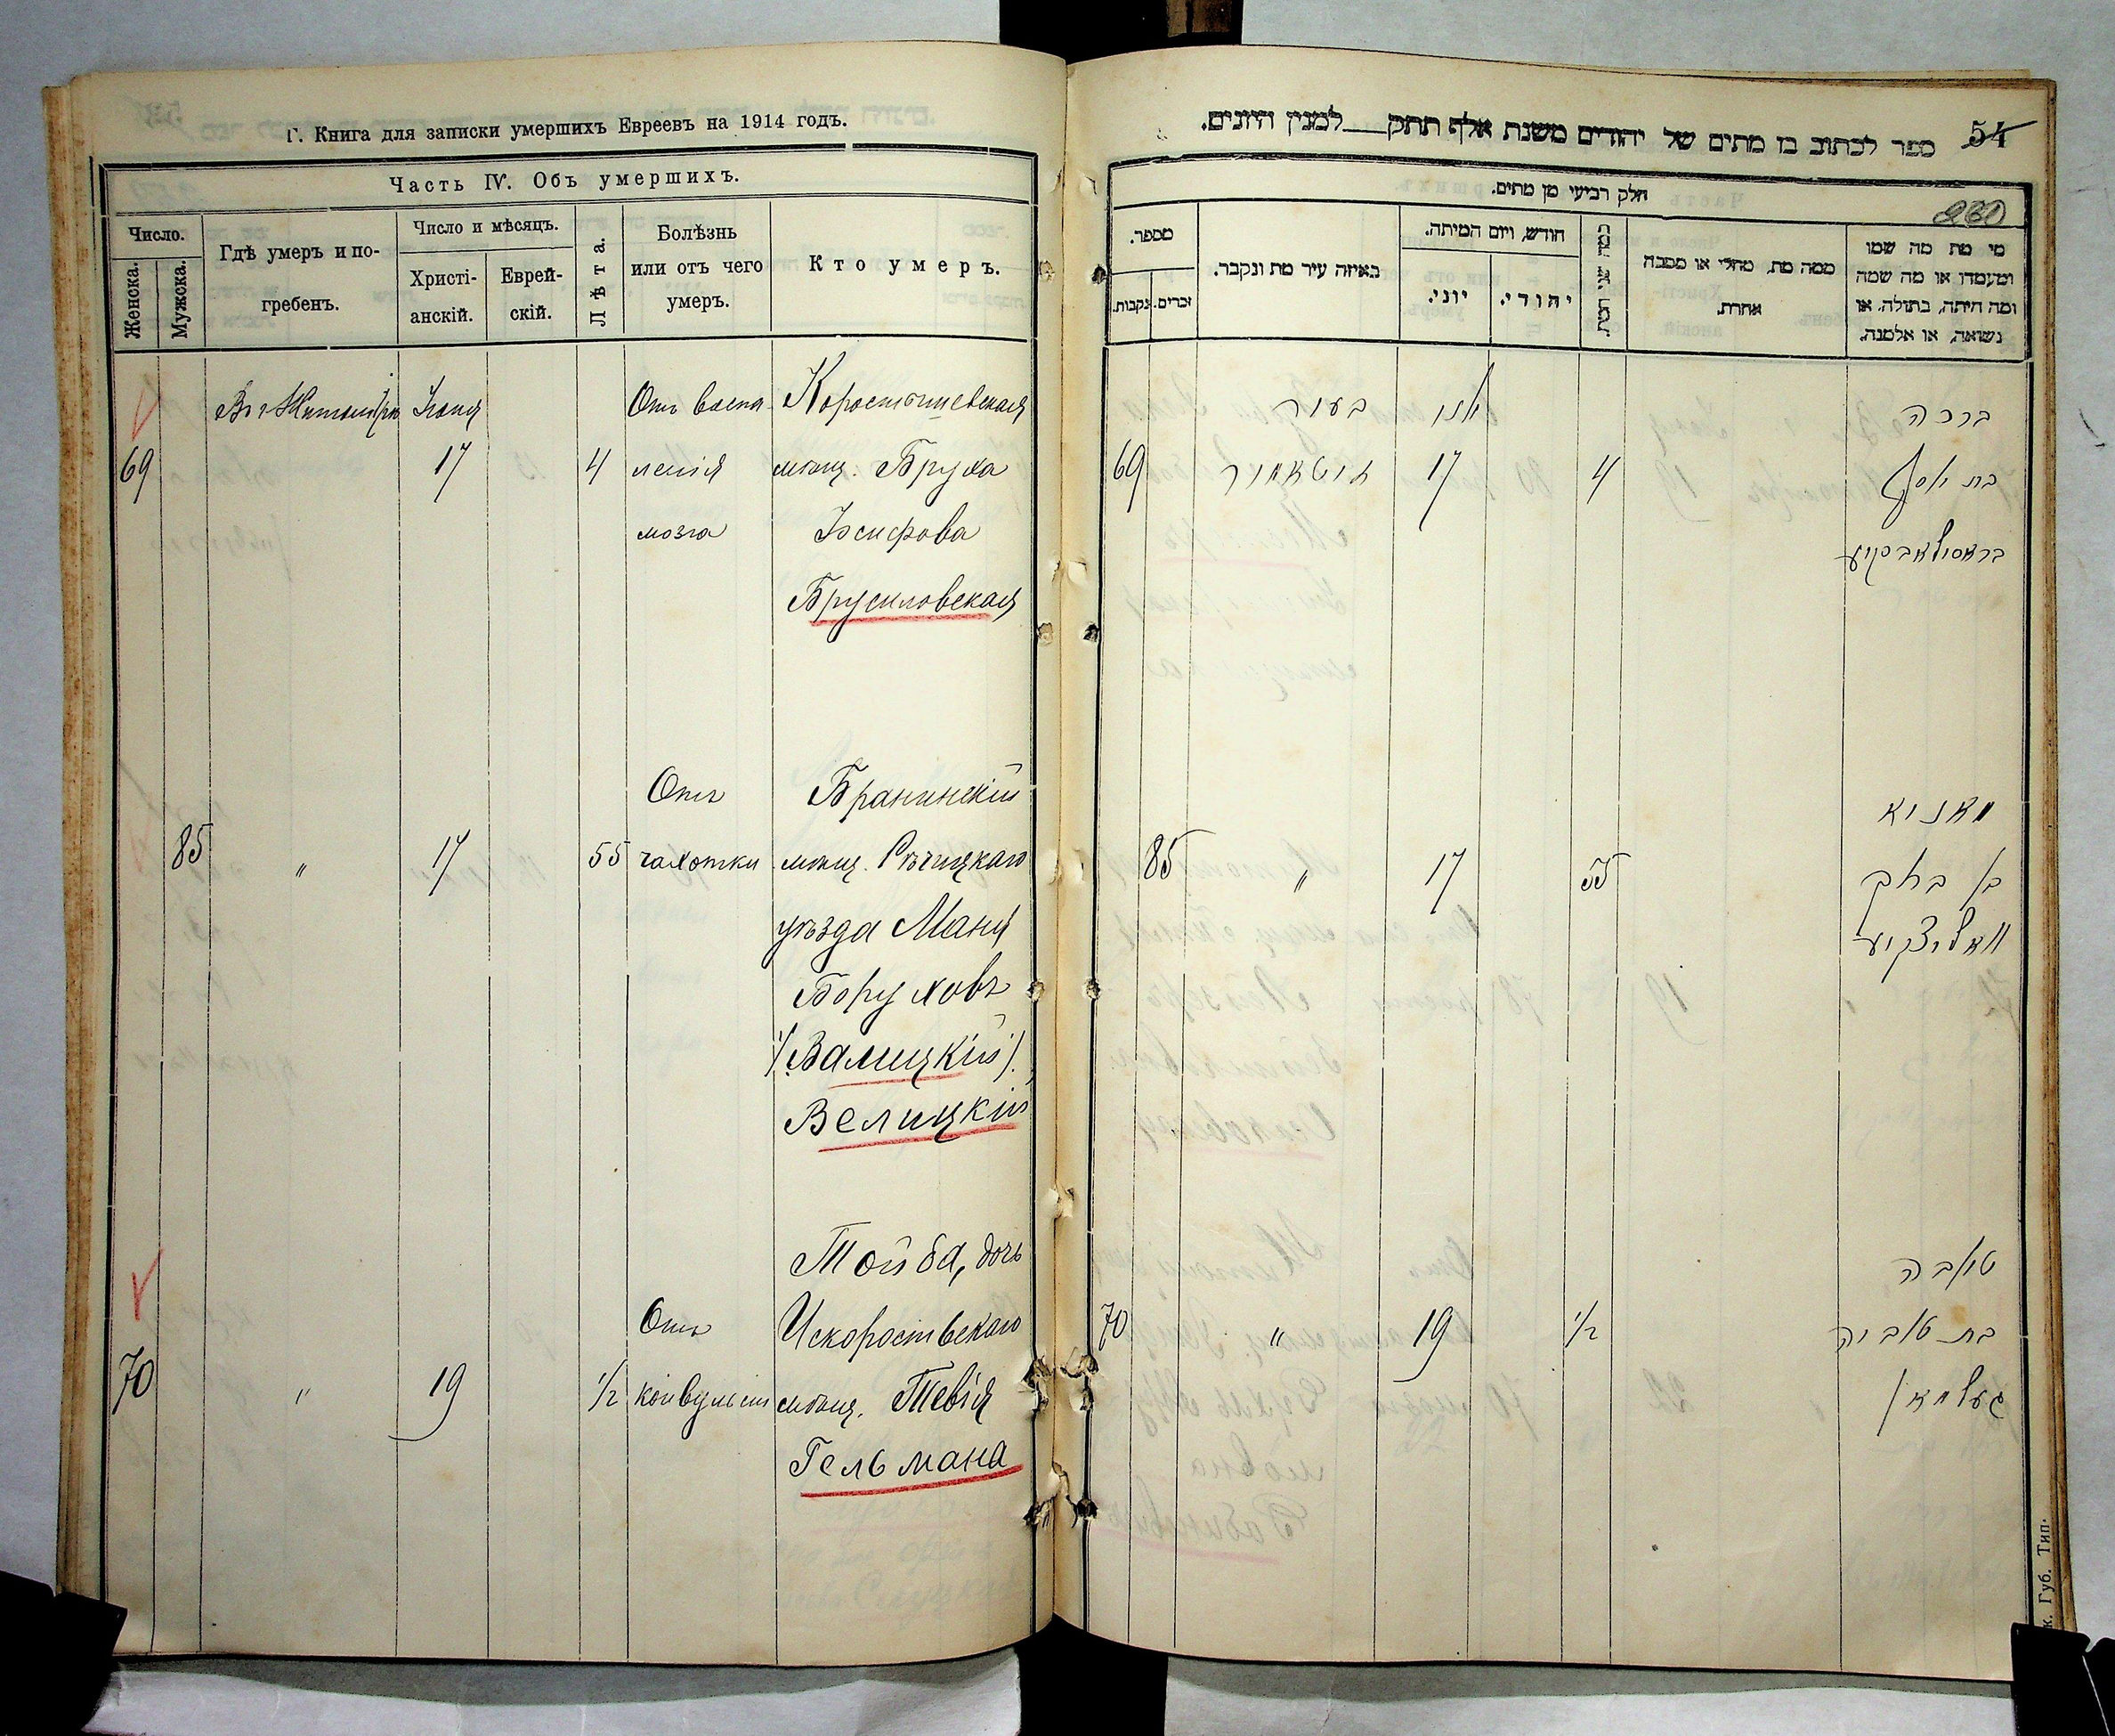 Г. Книга для записки умершихъ Евреевъ на 1914 годъ.
Часть IV. Объ умершихъ.
Число.
Женска.
Мужска.
Гдѣ умеръ и по-
гребенъ.
Число и мѣсяцъ.
Христі-
анскій.
Еврей-
скій.
Лѣта.
Болѣзнь
или отъ чего
умеръ.
Кто умеръ.
Въ г Житомірѣ Іюня Отъ воспа- Коростышевская
69 17 4 ленія мѣщ. Бруха
мозга Іосифова
Брусиловская
Отъ Бранинскій
85 " 17 55 чахотки мѣщ. Рѣчицкаго
уѣзда Маня
Боруховъ
/Валицкій/.
Велицкій
Тойба, дочь
Отъ Искоростьскаго
70 " 19 1/2 конвульсіи мѣщ. Тевія
Гельмана
ספר לכתוב בו מתים של יהודים משנת אלף תתק למנין היונים.
54
חלק רביעי מן מתים.
230
מספר.
נקבות.
זכרים.
באיזה עיר מת ונקבר.
חודש, ויום המיתה.
יוני.
יהודי.
כמה שני חיות.
ממה מת, מחלי או מסבה
אחרת.
מי מת מה שמו
ומעמדו או מה שמה
ומה היתה, בתולה, או
נשואה, או אלמנה.
ברכה
יוני
בעיר
69 זיטאמיר 17 4 בת יוסף
בראסילאבסקיע
מאניא
85 " 17 55 בן ברוך
וואליצקיע
טובה
70 " 19 1/2 בת טוביה
געלמאן
к. Губ. Тип.